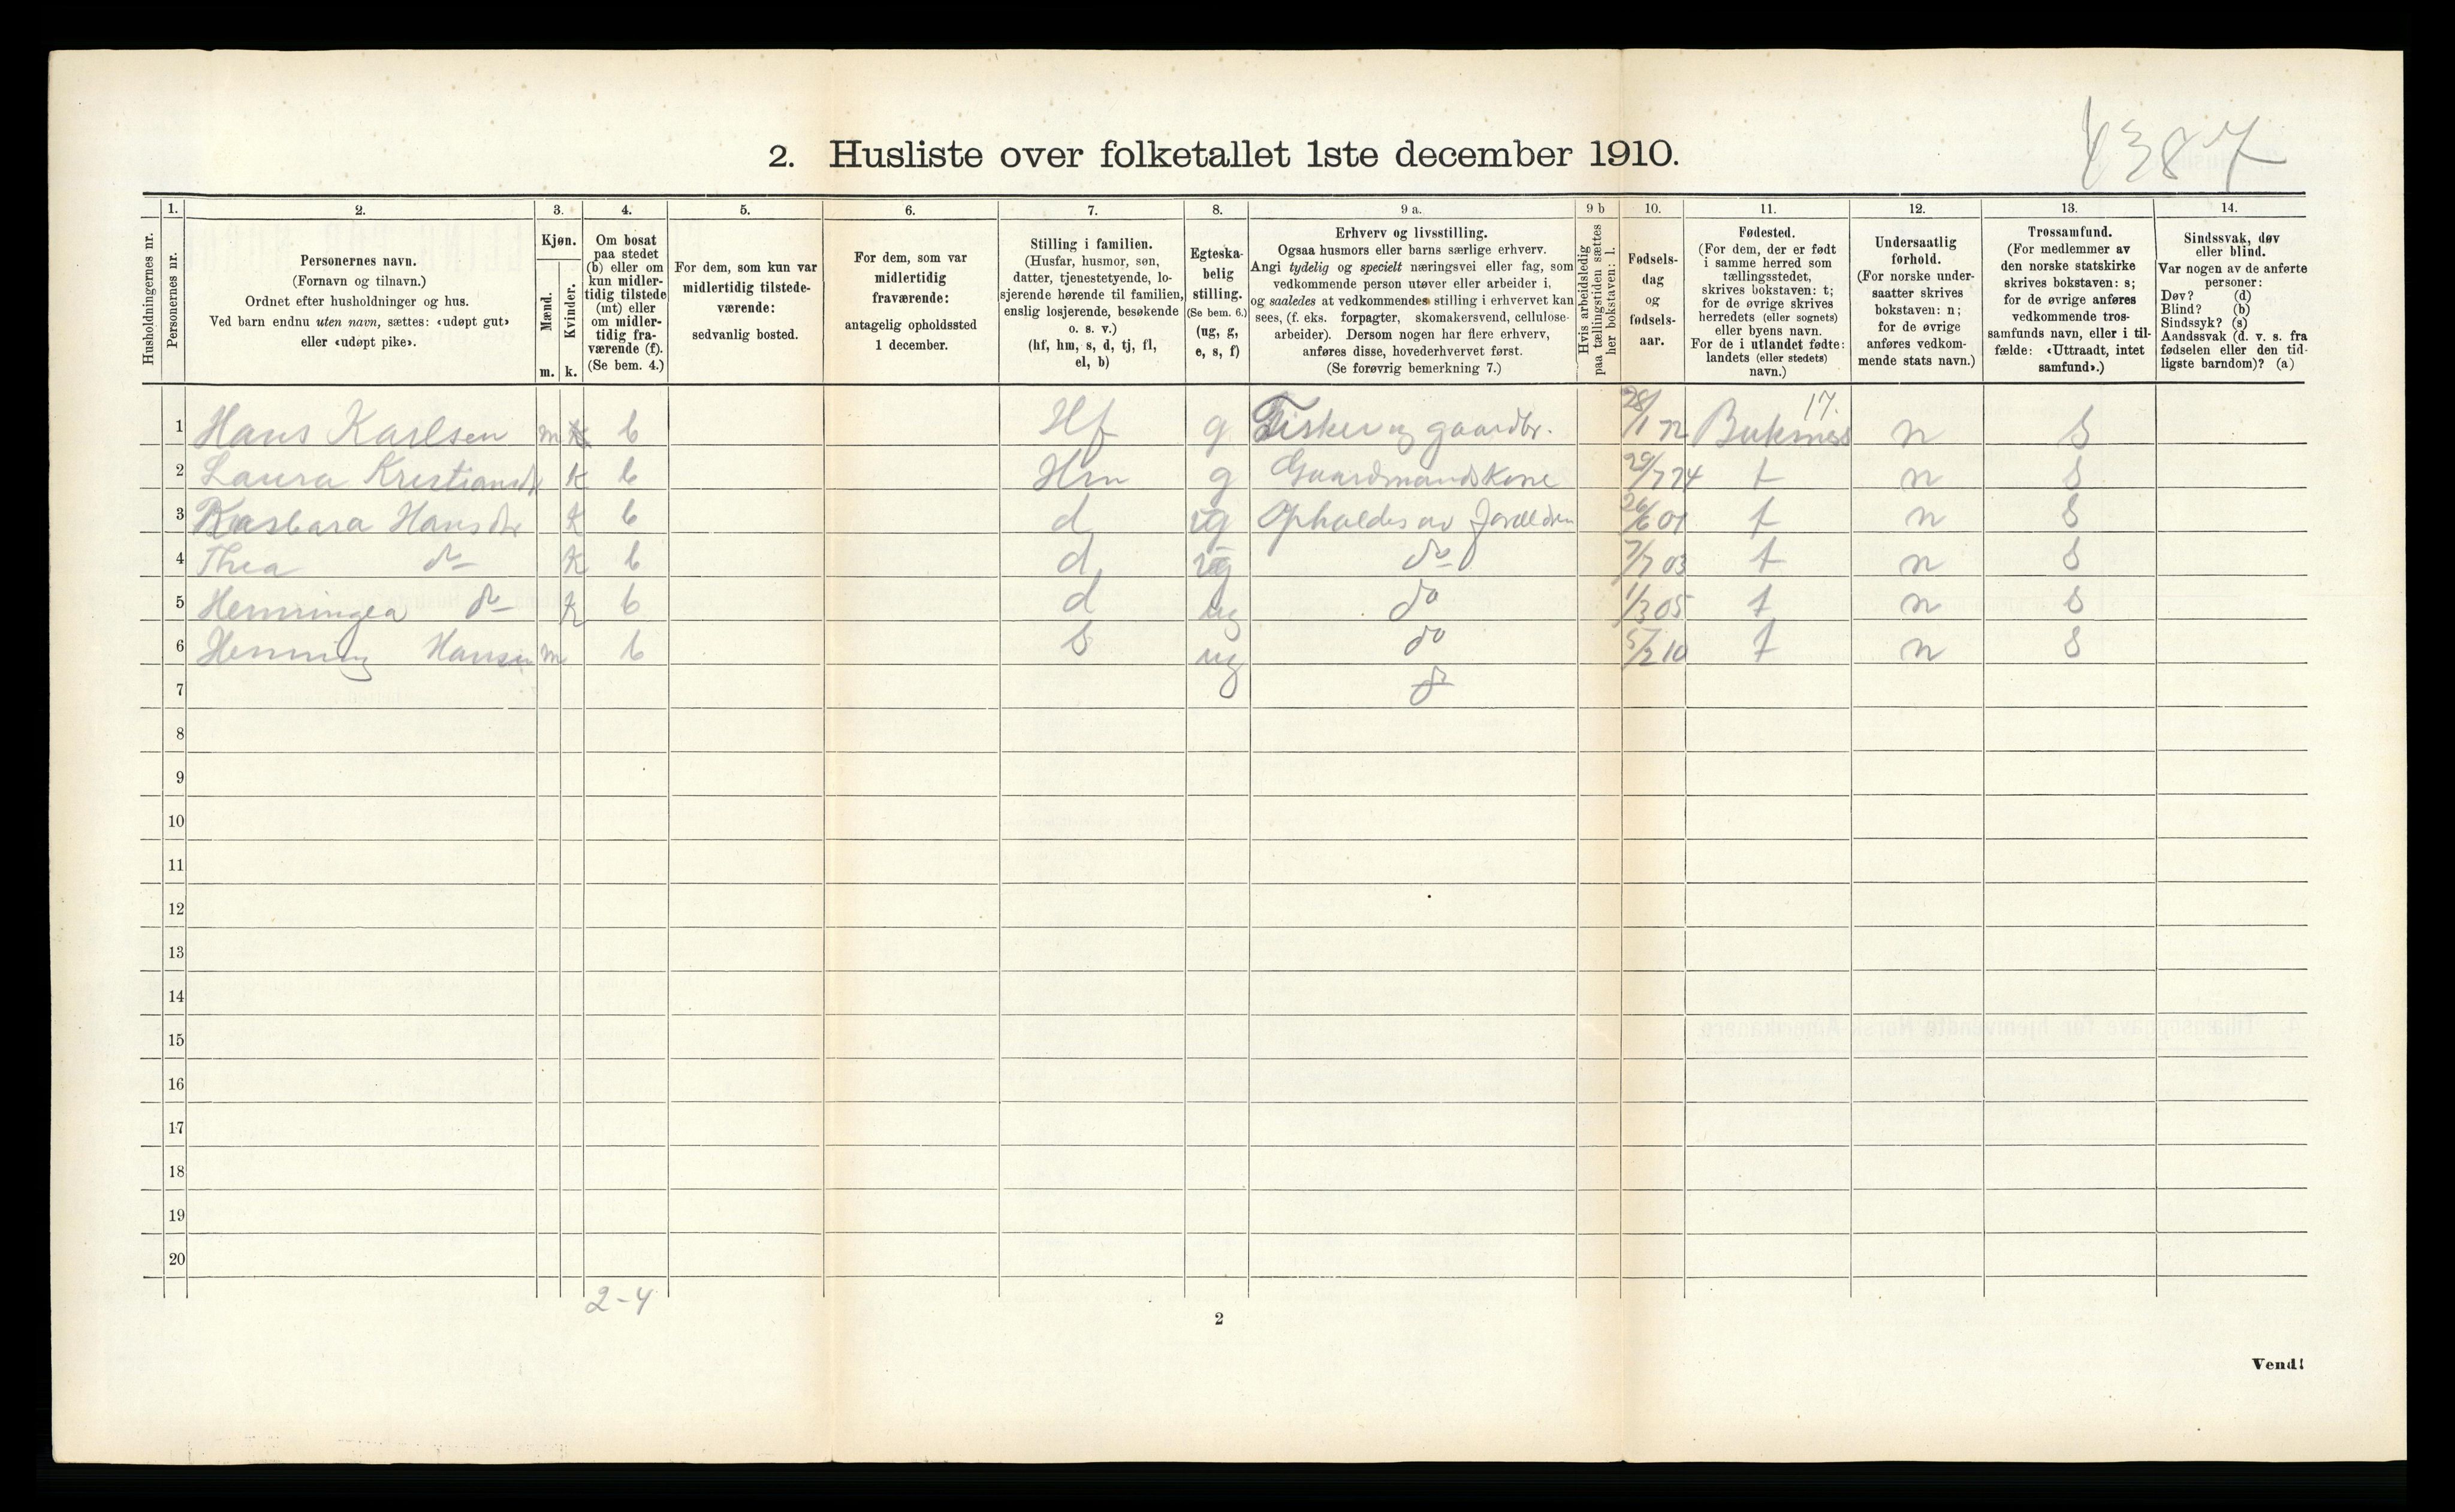 4387
2. Husliste over folketallet 1ste december 1910.
Husholdningernes nr.
1. Personernes nr.
2. Personernes navn. (Fornavn og tilnavn.) Ordnet efter husholdninger og hus. Ved barn endnu uten navn, sættes: «udøpt gut» eller «udøpt pike».
3. Kjøn. Mænd. m. Kvinder. k.
4. Om bosat paa stedet (b) eller om kun midlertidig tilstede (mt) eller om midlertidig fraværende (f). (Se bem. 4.)
5. For dem, som kun var midlertidig tilstedeværende: sedvanlig bosted.
6. For dem, som var midlertidig fraværende: antagelig opholdssted 1 december.
7. Stilling i familien. (Husfar, husmor, søn, datter, tjenestetyende, losjerende hørende til familien, enslig losjerende, besøkende o. s. v.) (hf, hm, s, d, tj, fl, el, b)
8. Egteskabelig stilling. (Se bem. 6.) (ug, g, e, s, f)
9 a. Erhverv og livsstilling. Ogsaa husmors eller barns særlige erhverv. Angi tydelig og specielt næringsvei eller fag, som vedkommende person utøver eller arbeider i, og saaledes at vedkommendes stilling i erhvervet kan sees, (f. eks. forpagter, skomakersvend, cellulosearbeider). Dersom nogen har flere erhverv, anføres disse, hovederhvervet først. (Se forøvrig bemerkning 7.)
9 b Hvis arbeidsledig paa tællingstiden sættes her bokstaven: l.
10. Fødselsdag og fødselsaar.
11. Fødested. (For dem, der er født i samme herred som tællingsstedet, skrives bokstaven: t; for de øvrige skrives herredets (eller sognets) eller byens navn. For de i utlandet fødte: landets (eller stedets) navn.)
12. Undersaatlig forhold. (For norske undersaatter skrives bokstaven: n; for de øvrige anføres vedkommende stats navn.)
13. Trossamfund. (For medlemmer av den norske statskirke skrives bokstaven: s; for de øvrige anføres vedkommende trossamfunds navn, eller i tilfælde: «Uttraadt, intet samfund».)
14. Sindssvak, døv eller blind. Var nogen av de anførte personer: Døv? (d) Blind? (b) Sindssyk? (s) Aandssvak (d. v. s. fra fødselen eller den tidligste barndom)? (a)
1 Hans Karlsen m k b Hf g Fisker og gaardbr. 28/1 72 Buksnes 17. n S
2 Laura Kristiansdr k b Hm g Gaardmandskone 29/7 74 t n S
3 Barbara Hansdtr k b d ug Opholdes av Forældren 26/6 01 t n S
4 Thea do k b d ug do 7/7 03 t n S
5 Henningea do k b d ug do 1/3 05 t n S
6 Henning Hansen m b s ug do 5/2 10 t n S
7
8
9
10
11
12
13
14
15
16
17
18
19
20
2-4
2
Vend!